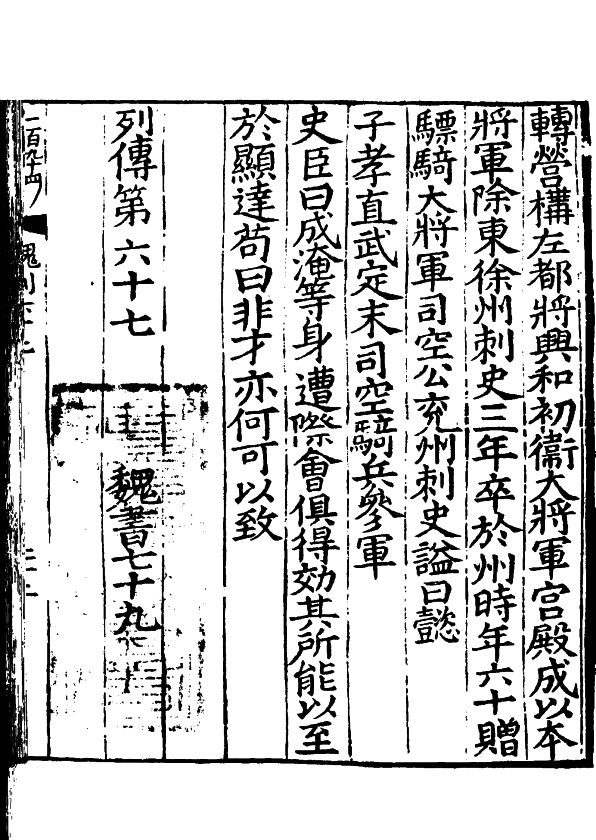 轉營構左都將興和初衞大將軍宫殿成以本
將軍除東徐州刺史三年卒於州時年六十贈
驃騎大將軍司空公兖州刺史謚曰懿
子孝直武定末司空騎兵參軍
史臣曰成淹等身遭際會俱得効其所能以至
於顯達苟曰非才亦何可以致
列傳第六十七 魏書七十九